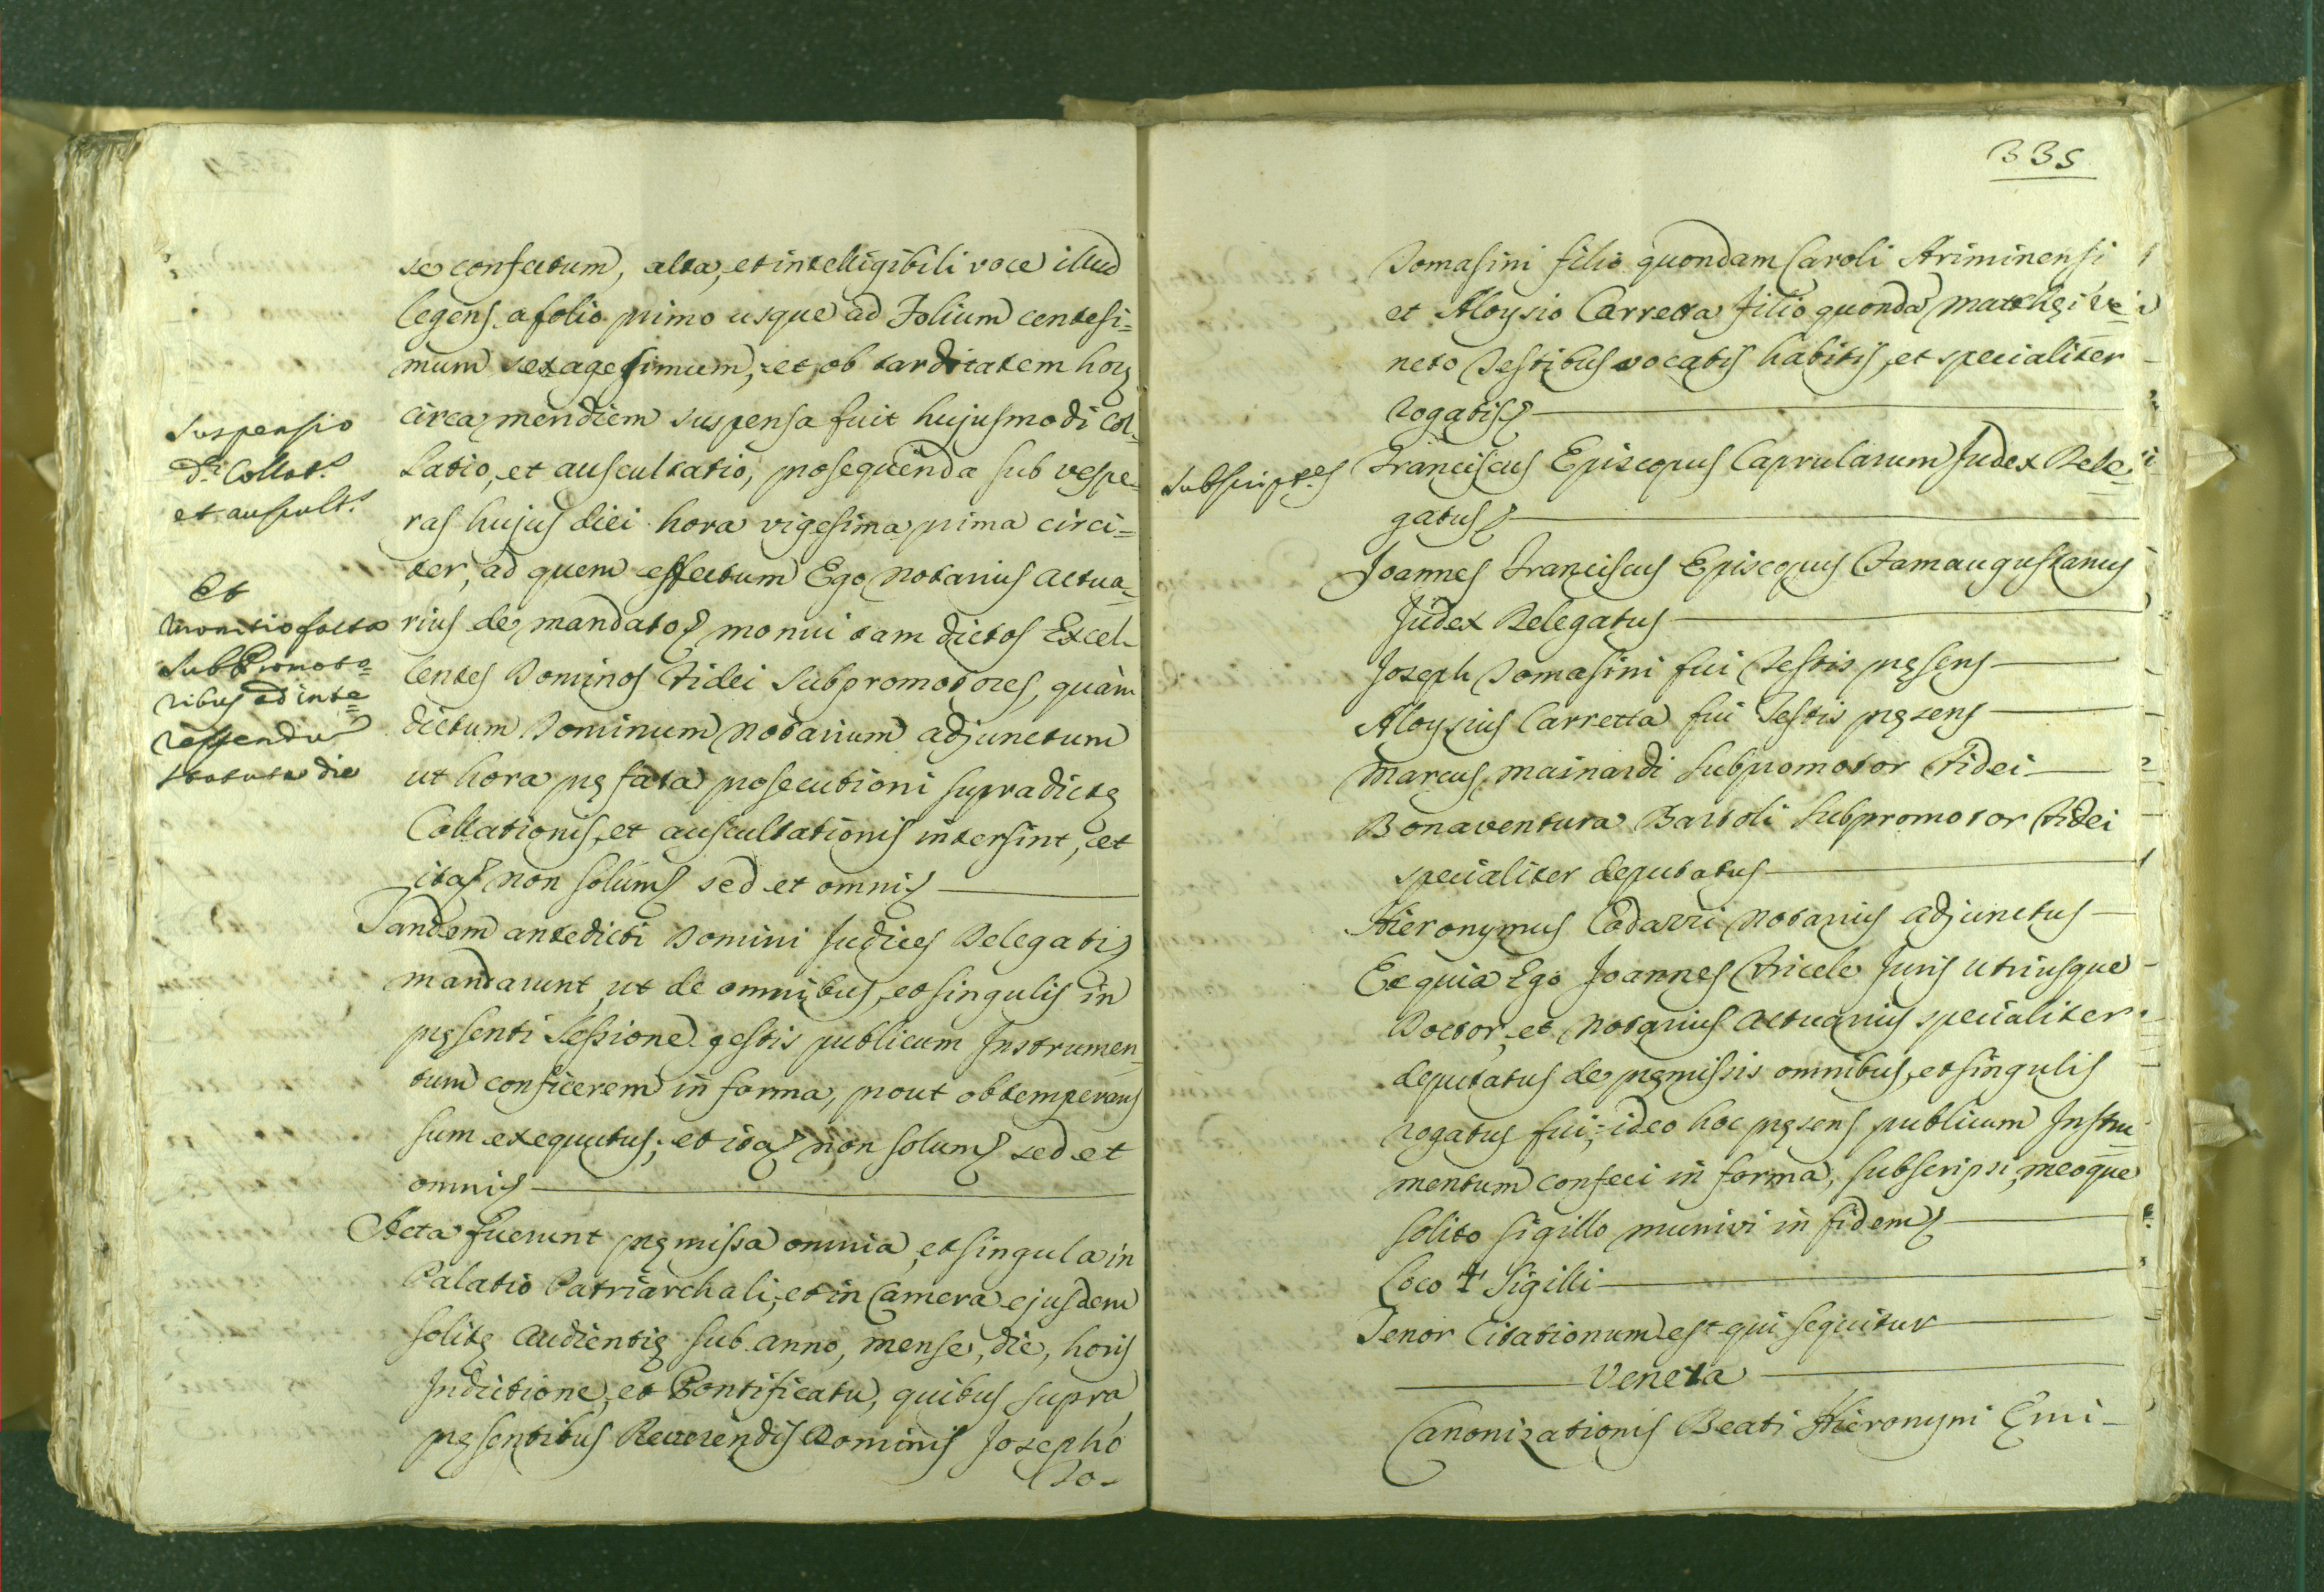 se confectum, alta, et intelligibili voce illud
legens a folio primo usque ad Folium centesi=
mum sexagesimum, et ob tarditatem horę
circa meridiem suspensa fuit hujusmodi Col-
latio, et auscultatio, prosequenda sub vespe=
ras hujus diei hora vigesima prima circi=
ter, ad quem effectum Ego Notarius Actua=
rius de mandato monui tam dictos Excel-
lentes Dominos Fidei Subpromotores, quàm
dictum Dominum Notarium adjunctum
ut hora pręfata prosecutioni supradictę
Collationis, et auscultationis intersint, et
ita non solum sed et omni
Tandem antedicti Domini Judices Delegati
mandarunt, ut de omnibus, et singulis in
pręsenti Sessione gestis publicum Instrumen=
tum conficerem in forma, prout obtemperans
sum exequutus; et ita non solum sed et
omni
Acta fuerunt pręmissa omnia, et singula in
Palatio Patriarchali, et in Camera ejusdem
solitę Audientię sub anno, mense, die, horis
Indictione, et Pontificatu, quibus supra
pręsentibus Reverendis Dominis Josepho
To-
Suspensio
dę Collat.s
et auscult.s
Et
monitio facta
SubPromoto=
ribus ad inte=
ressendu
statuta die
335
Tomasini filio quondam Caroli Ariminensi
et Aloysio Carretta filio quonda Matthęi Ve=
neto Testibus vocatis habitis, et specialiter
rogatis
Subscript.es
Franciscus Episcopus Caprularum Judex Dele=
gatus
Joannes Franciscus Episcopus Famaugustanus
Judex Delegatus
Joseph Tomasini fui Testis pręsens
Aloysius Carretta fui Testis pręsens
Marcus Mainardi Subpromotor Fidei
Bonaventura Bartoli Subpromotor Fidei
specialiter deputatus
Hieronymus Codarri Notarius adjunctus
Et quia Ego Joannes Fricele Juris utriusque
Doctor, et Notarius Actuarius specialiter
deputatus de pręmissis omnibus, et singulis
rogatus fui; ideo hoc pręsens publicum Instru=
mentum confeci in forma, subscripsi, meoque
solito sigillo munivi in fidem
Loco + Sigilli
Tenor Citationum est qui sequitur
Veneta
Canonizationis Beati Hieronymi Emi-